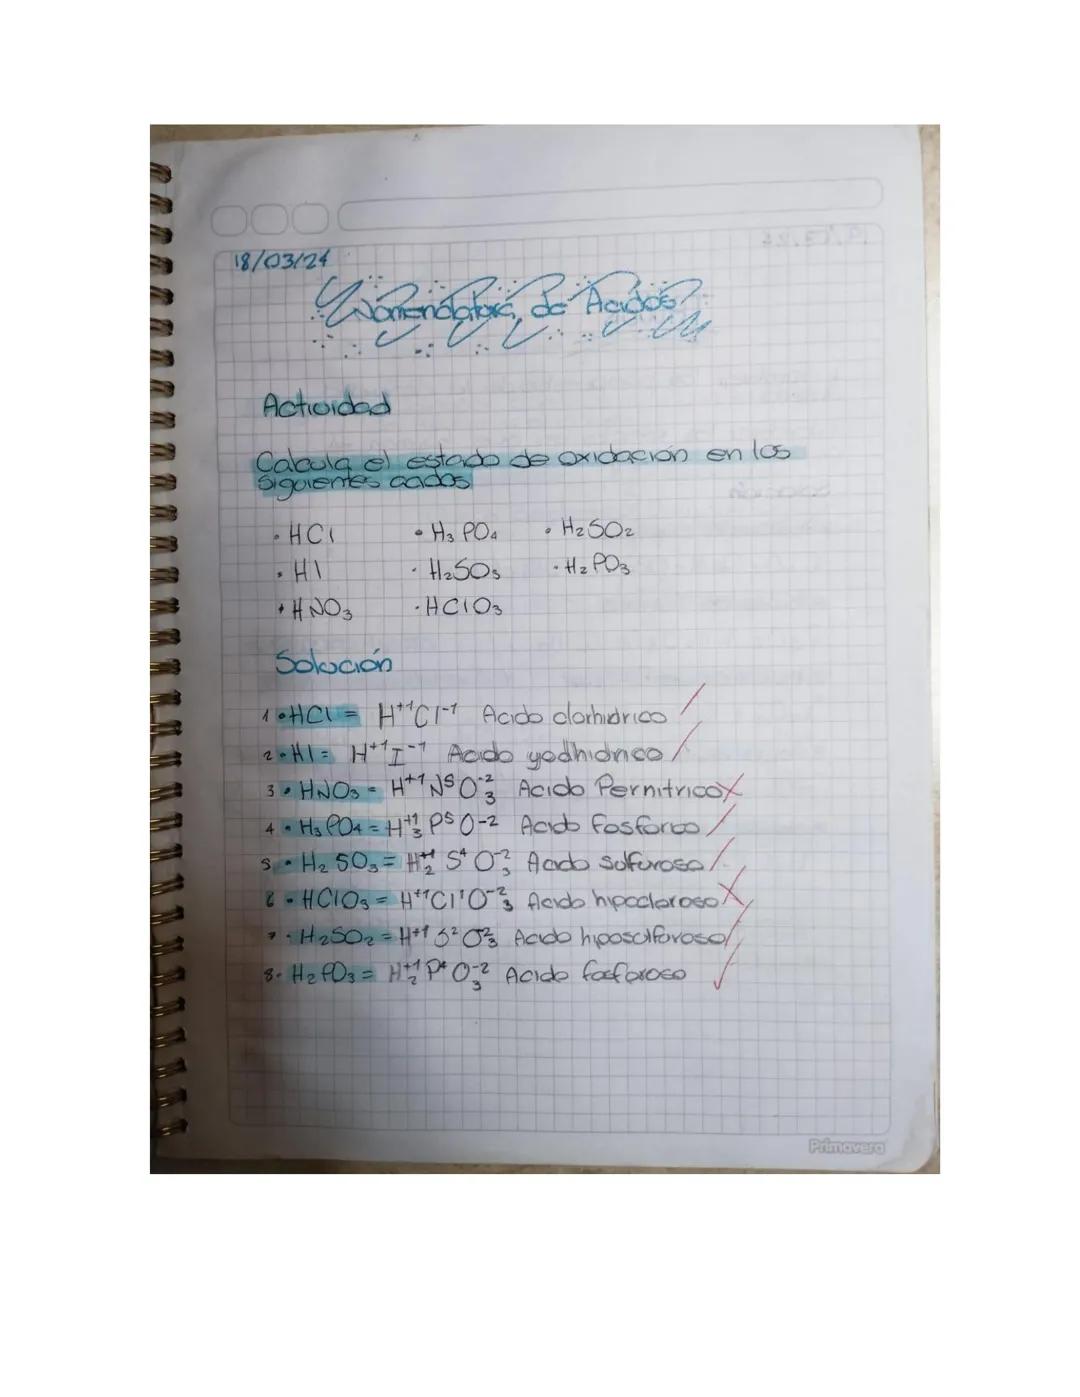 18/03/24
Nomenclatura de Acidos
Actividad
Calcula el estado de oxidación en los
siguientes acidos
• HCl • H3 PO4 • H2SO2
• HI • H2SO3 • H2 PO3
• HNO3 • HClO3
Solución
1 • HCl = H+1Cl-1 Acido clorhidrico /
2 • HI = H+1I-1 Acido yodhidrico /
3 • HNO3 = H+1 N5 O-2 3 Acido Pernitrico X
4 • H3 PO4 = H+1 3 P5 O-2 Acido fosforico /
5 • H2 SO3 = H+1 2 S4 O-2 3 Acido sulfuroso /
6 • HClO3 = H+1Cl1O-2 3 Acido hipocloroso X
7 • H2SO2 = H+1 S2 O-2 3 Acido hiposulfuroso /
8 • H2 PO3 = H+1 2 P4 O-2 3 Acido fosforoso ✓
Primavera